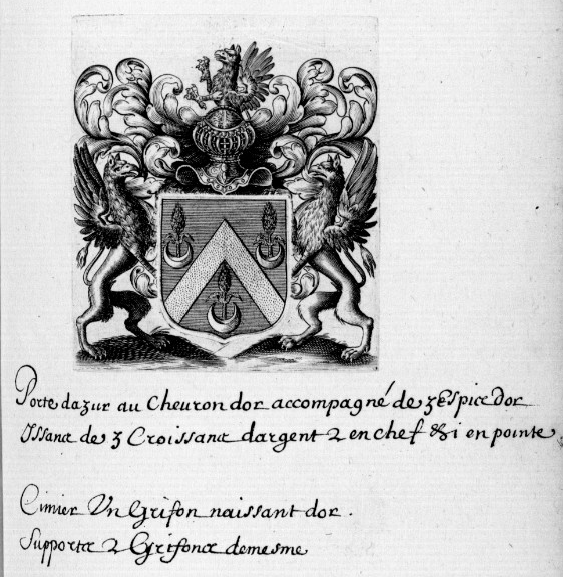 Porte dazur au Cheuron dor accompagné de 3 Espics Dor
Issans de 3 Croissans dargent 2 en chef & i en pointe
Cimier Vn Grifon naissant dor.
Supports 2 Grifons demesme